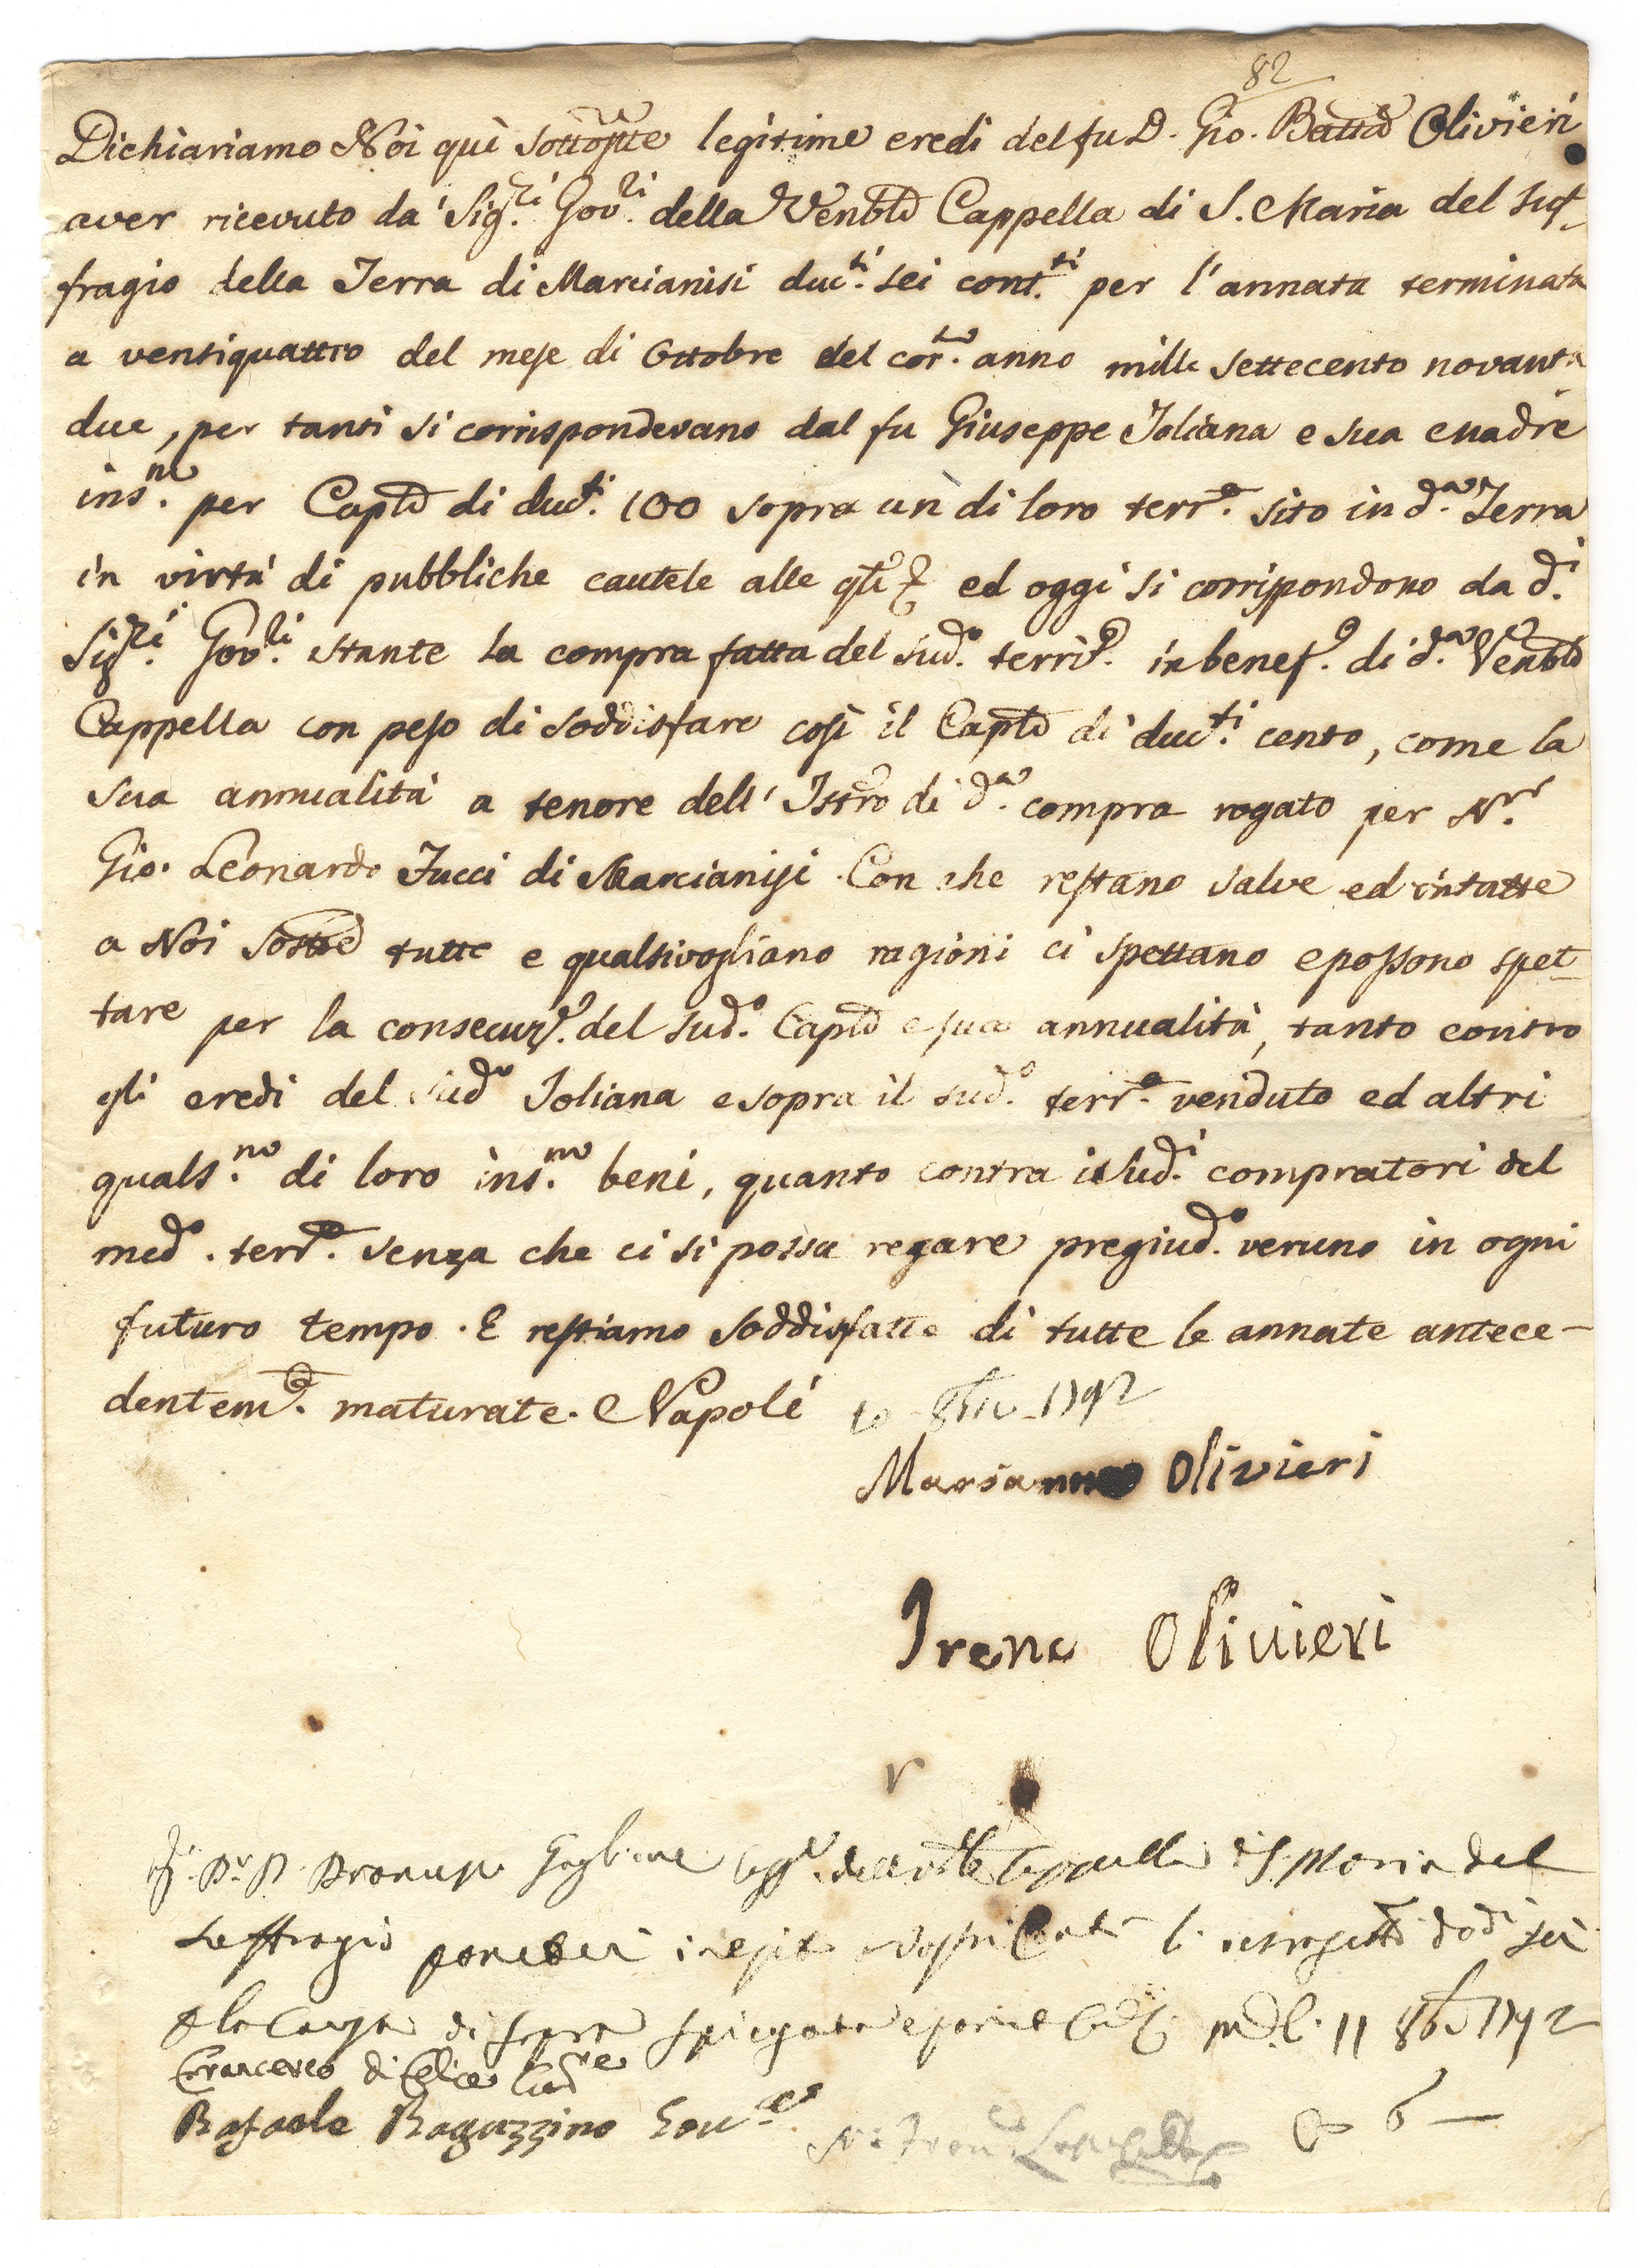 82
Dichiariamo Noi quì sottoste legitime eredi del fu D. Gio. Batta Olivieri
aver ricevuto da' Sig.ri Gov.ri della Venble Cappella di S. Maria del Suf-
fragio della Terra di Marcianisi duc.ti sei cont.ti per l'annata terminata
a ventiquattro del mese di Ottobre del cor.te anno mille settecento novanta
due, per tanti si corrispondevano dal fu Giuseppe Joliana e sua Madre
ins.me per Caple di duc.ti 100 sopra un di loro terr.o sito in d.a Terra
in virtù di pubbliche cautele alle qli ed oggi si corrispondono da d.i
Sig.ri Gov.ri stante la compra fatta del sud.o territ.o in benef.o di d.a Venble
Cappella con peso di soddisfare così il Caple di duc.ti cento, come la
sua annualità a tenore dell' Istro di d.a compra rogato per N.r
Gio. Leonardo Jucci di Marcianisi. Con che restano salve ed intatte
a Noi sottoe tutte e qualsivogliano ragioni ci spettano e possono spet-
tare per la consecuz.e del sud.o Caple e sua annualità, tanto contro
gli eredi del sud.o Joliana e sopra il sud.o terr.o venduto ed altri
quals.no di loro ins.me beni, quanto contra i sud.i compratori del
med.o terr.o senza che ci si possa regare pregiud.o veruno in ogni
futuro tempo. E restiamo soddisfatte di tutte le annate antece-
dentem.e maturate. Napoli 10 8bre 1792
Marianna Olivieri
Irene Olivieri
Cappella di S. Maria del
Suffragio ponerà in esito sei
di sopra spiegata 11 8bre 1792
Francesco di Felice
Rafaele Raguzzino Gov.re
6 —